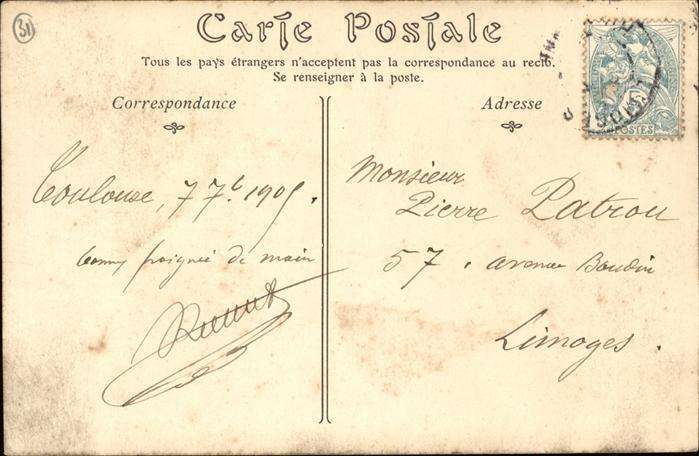 31
Carte Postale
Tous les pays étrangers n'acceptent pas la correspondance au recto.
Se renseigner à la poste.
Correspondance
Adresse
POSTES
Toulouse, 7 7b 1905.
bonne poignée de main
Monsieur
Pierre Patrou
57, avenue Baudin
Limoges.